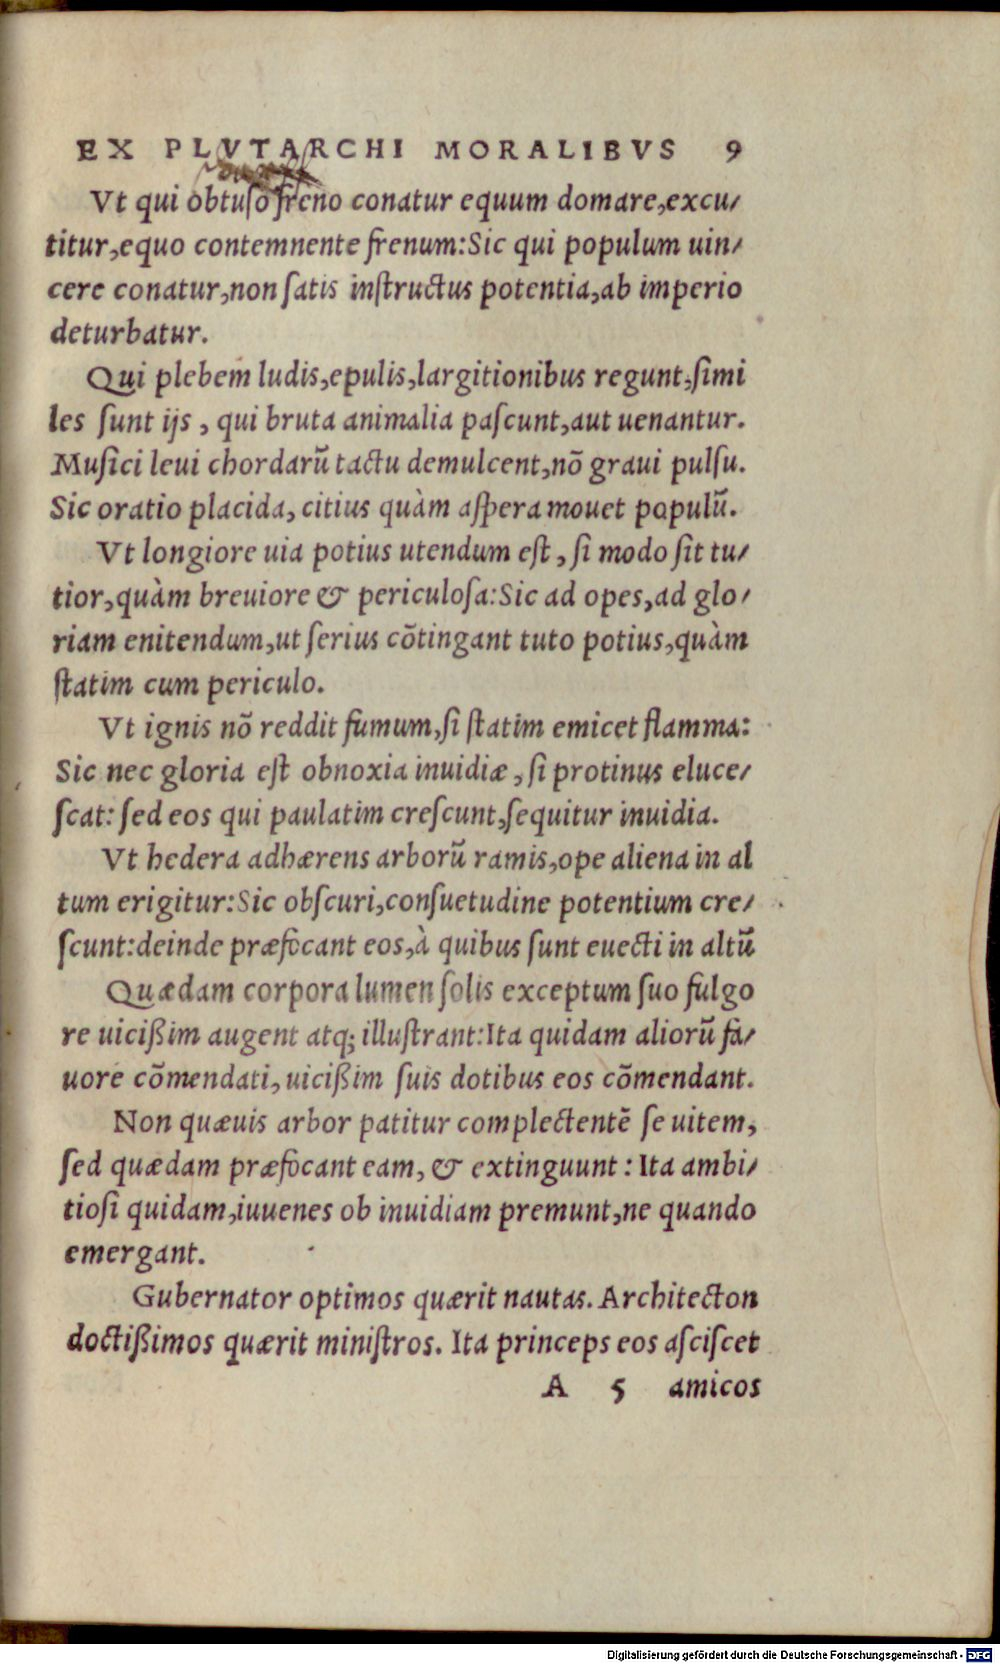 EX PLVTARCHI MORALIBVS 9
Vt qui obtuſo freno conatur equum domare,excu/
titur,equo contemnente frenum:Sic qui populum uin/
cere conatur,non ſatis inſtructus potentia,ab imperio
deturbatur.
Qui plebem ludis,epulis,largitionibus regunt,ſimi
les ſunt ijs , qui bruta animalia paſcunt,aut uenantur.
Muſici leui chordarũ tactu demulcent,nõ graui pulſu.
Sic oratio placida, citius quàm aſpera mouet populũ.
Vt longiore uia potius utendum eſt , ſi modo ſit tu/
tior,quàm breuiore & periculoſa:Sic ad opes,ad glo/
riam enitendum,ut ſerius cõtingant tuto potius,quàm
ſtatim cum periculo.
Vt ignis nõ reddit fumum,ſi ſtatim emicet flamma:
Sic nec gloria eſt obnoxia inuidiæ , ſi protinus eluce/
ſcat: ſed eos qui paulatim creſcunt,ſequitur inuidia.
Vt hedera adhærens arborũ ramis,ope aliena in al
tum erigitur:Sic obſcuri,conſuetudine potentium cre/
ſcunt:deinde præfocant eos,à quibus ſunt euecti in altũ
Quædam corpora lumen ſolis exceptum ſuo fulgo
re uicißim augent atq; illuſtrant:Ita quidam aliorũ fa/
uore cõmendati, uicißim ſuis dotibus eos cõmendant.
Non quæuis arbor patitur complectentẽ ſe uitem,
ſed quædam præfocant eam, & extinguunt : Ita ambi/
tioſi quidam,iuuenes ob inuidiam premunt,ne quando
emergant.
Gubernator optimos quærit nautas. Architecton
doctißimos quærit miniſtros. Ita princeps eos aſciſcet
A 5 amicos
Digitalisierung gefördert durch die Deutsche Forschungsgemeinschaft - DFG